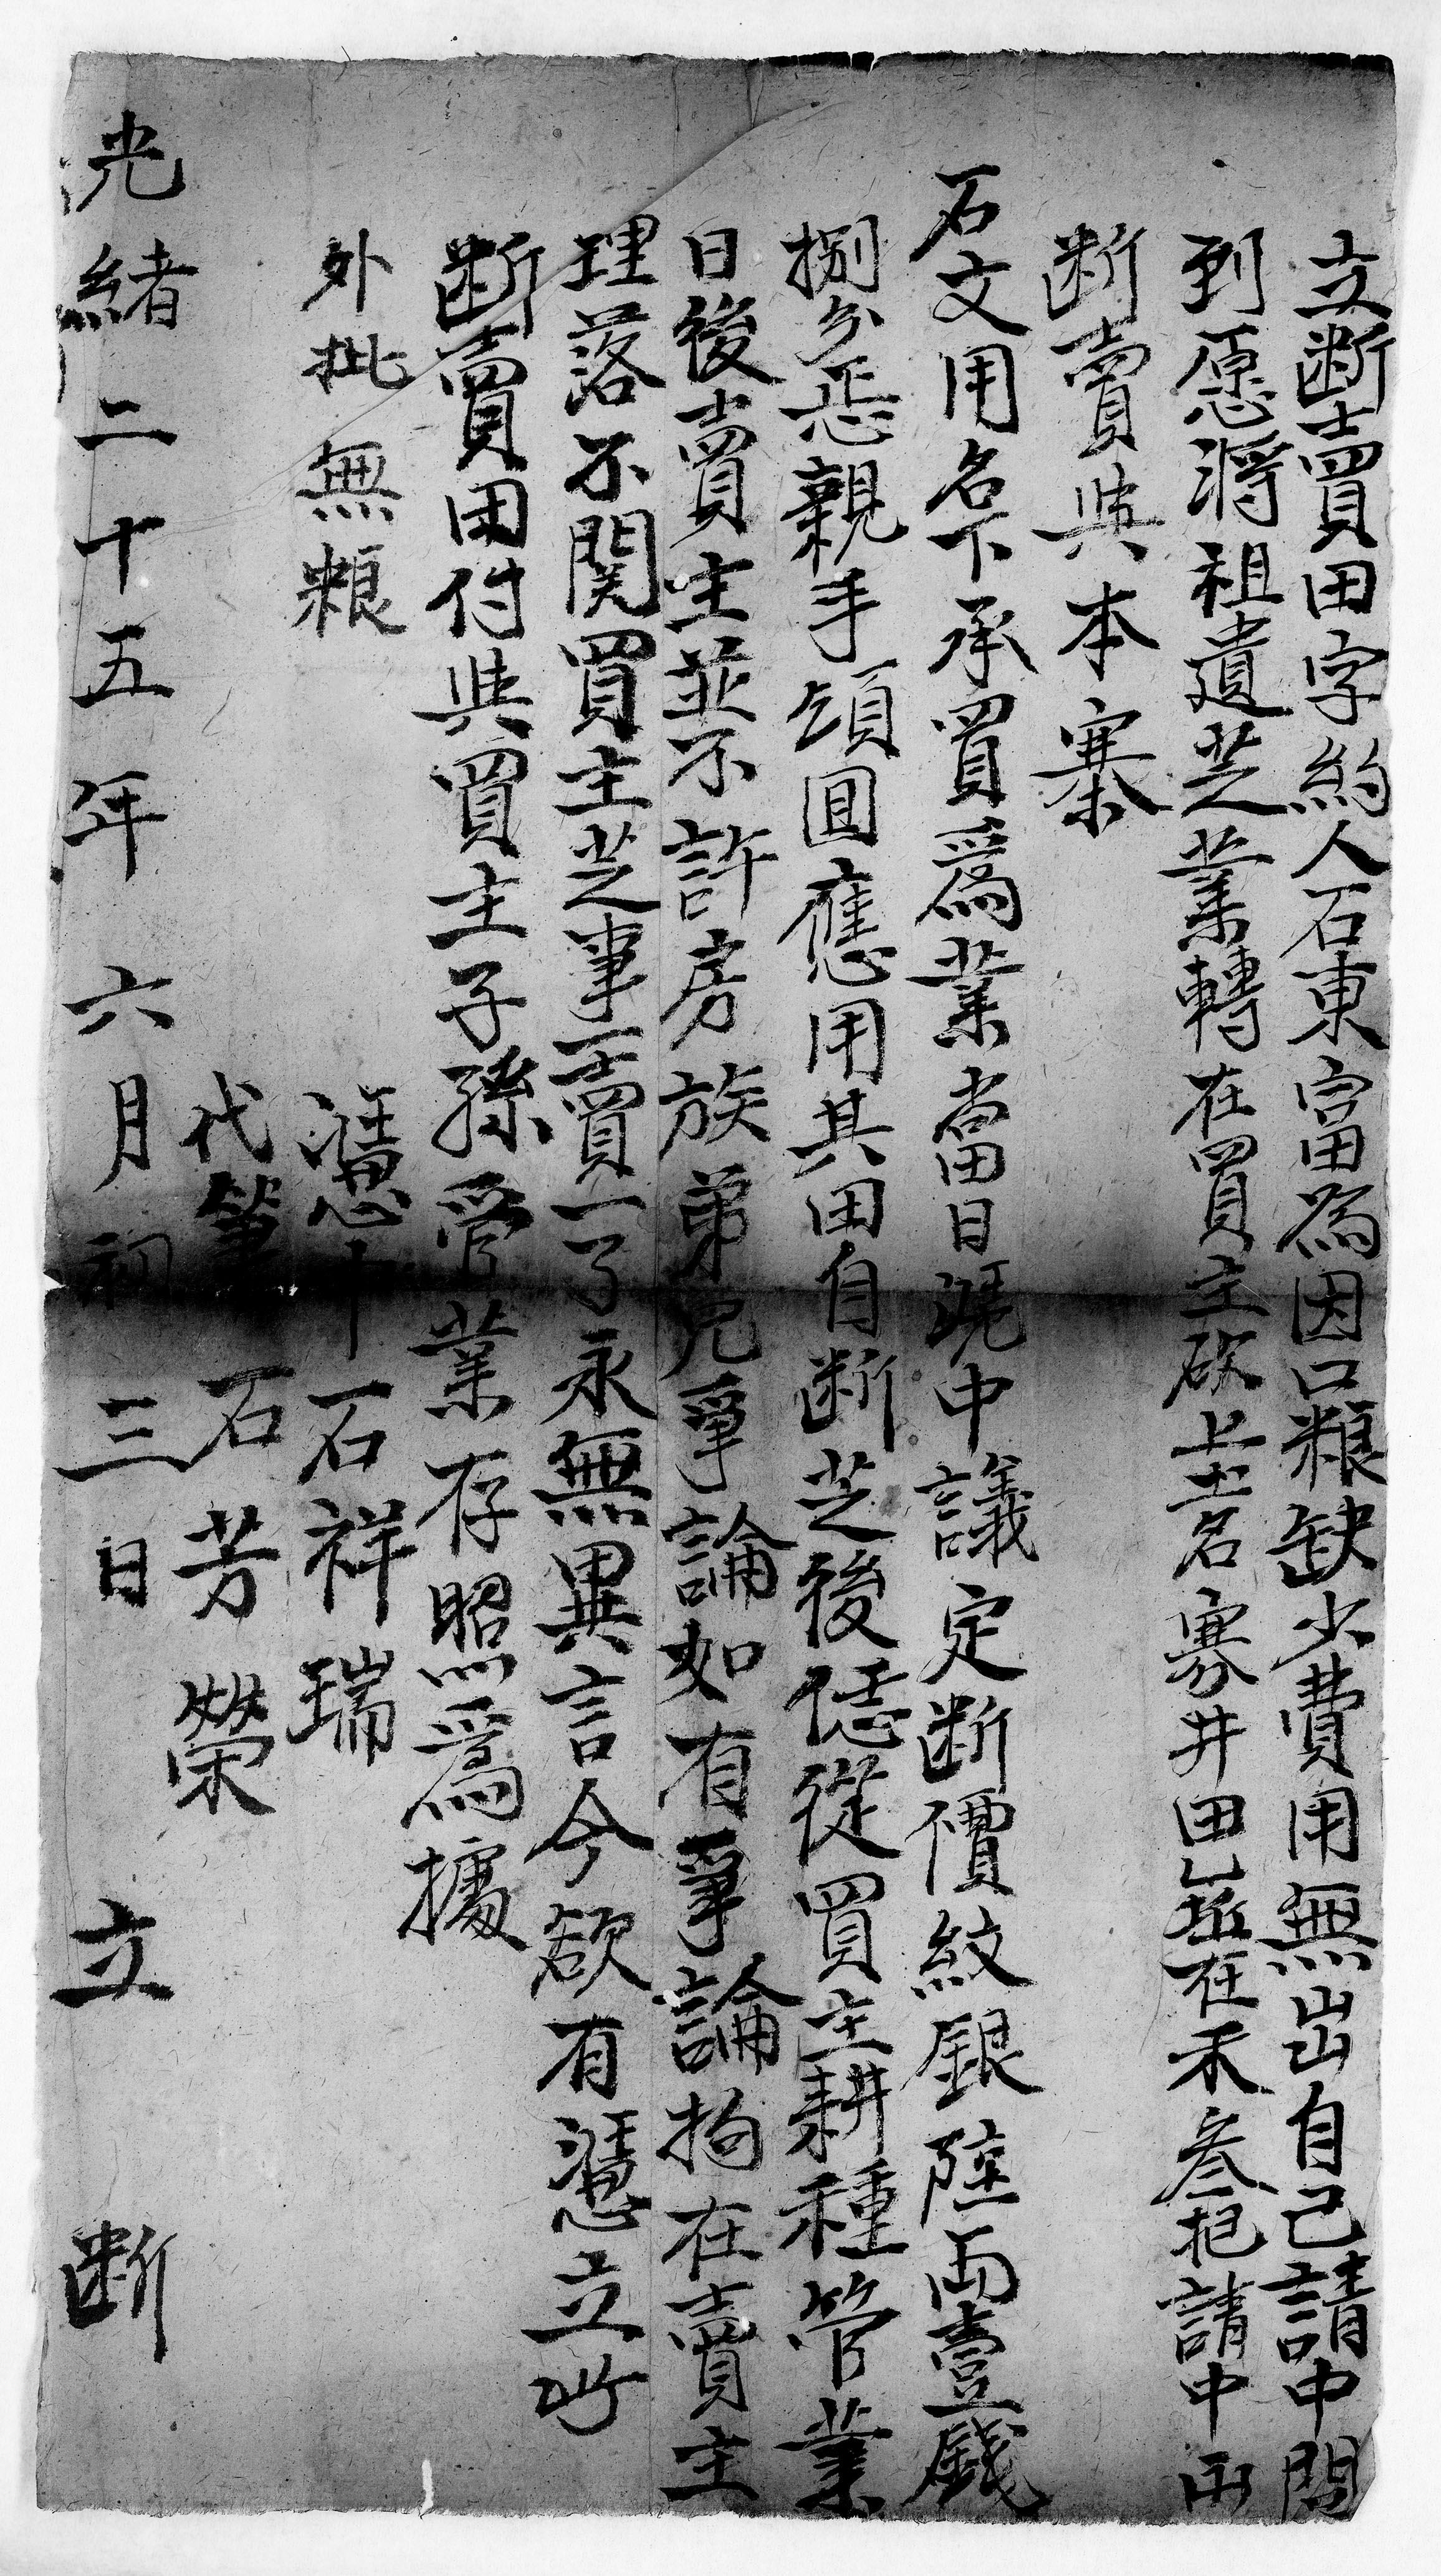 立断賣田字約人石東富為因口粮缺少費用無出自己請中問
到愿將祖遺芝業轉在買主砍上土名寨井田坵在禾叁把請中両
断賣與本寨
石文用名下承買爲業當日凴中議定断價紋銀陸両壹錢
捌分恁親手領囬應用其田自断芝後恁從買主耕種管業
日後賣主並不許房族弟兄爭論如有爭論拘在賣主
理落不関買主芝事一賣一了永無異言今欲有憑立此
断賣田付與買主子孫管業存照爲據
外批無粮
憑中石祥瑞
代筆石芳榮
光緒二十五年六月初三日立断